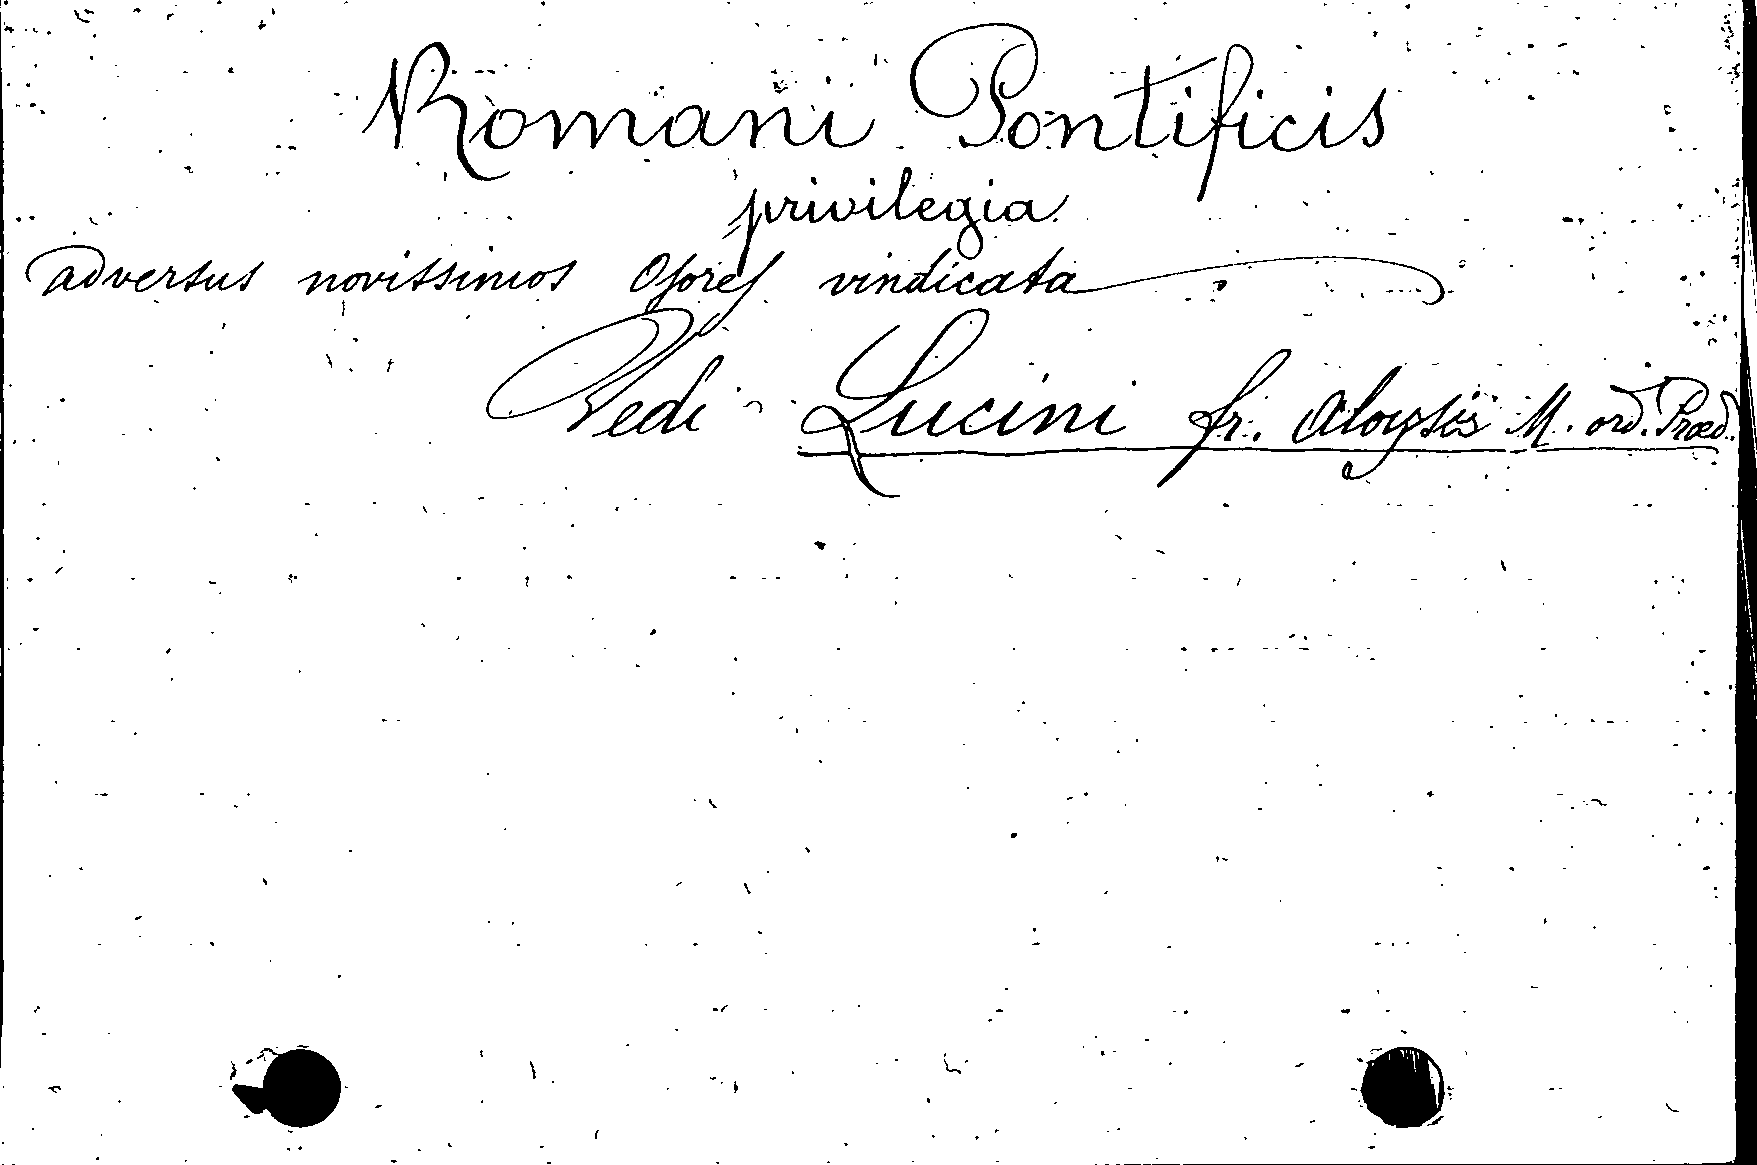 Romani Pontificis
privilegia
adversus novissimos Osores vindicata
Vedi - Lucini fr. Aloysii M. ord. Præd.